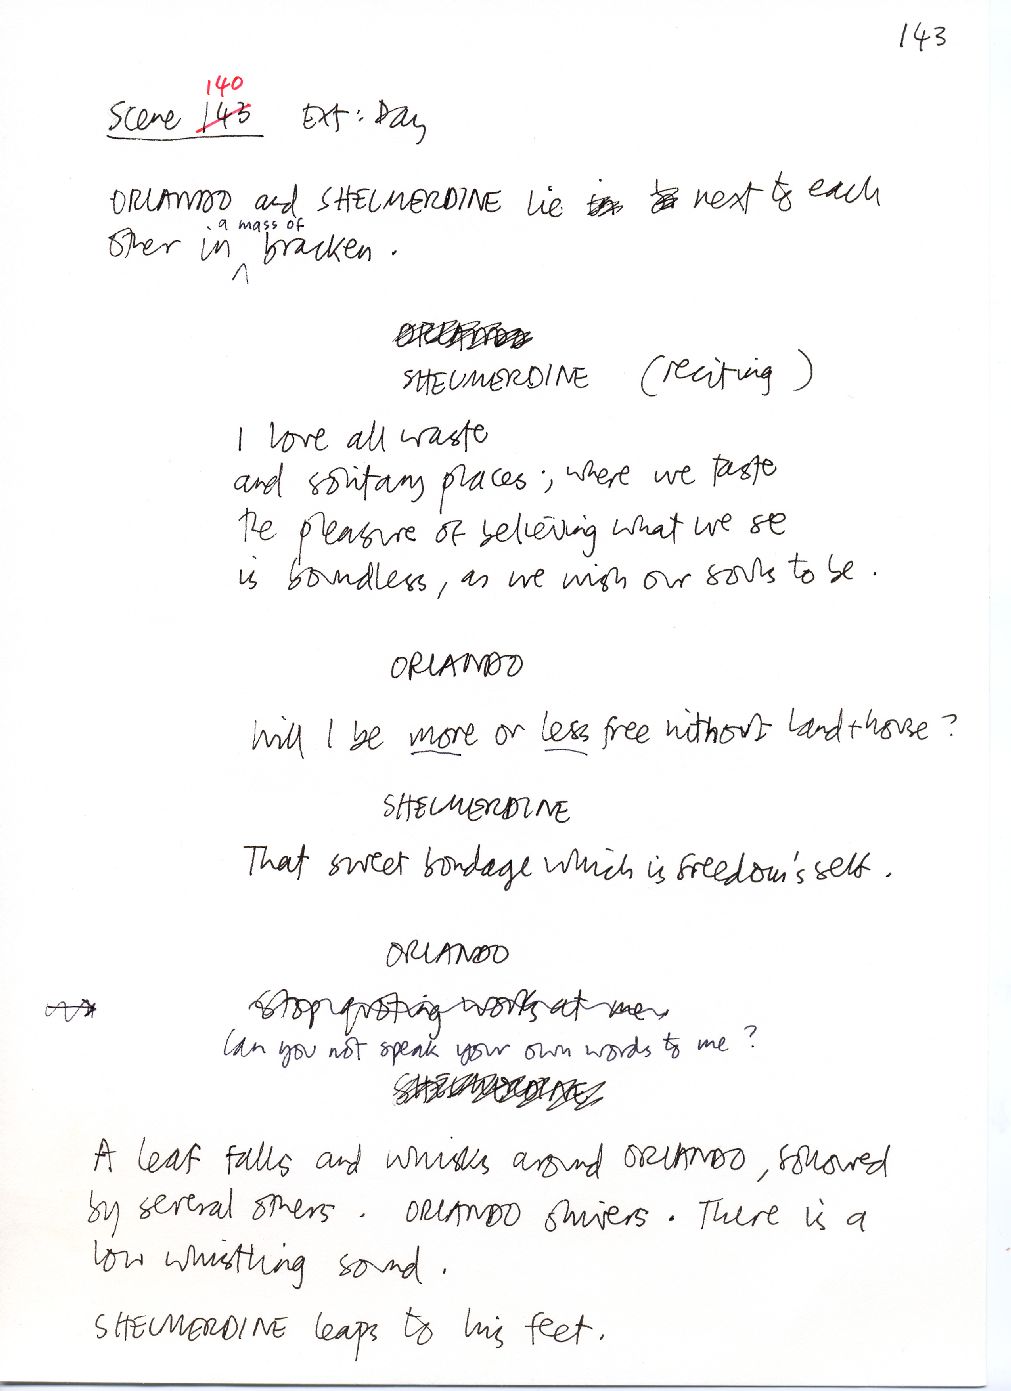 143
140
Scene 143 Ext: Day
ORLANDO and SHELMERDINE lie in to next to each
a mass of
other in bracken.
ORLANDO
SHELMERDINE (reciting)
I love all waste
and solitary places; where we taste
the pleasure of believing what we see
is boundless, as we wish our souls to be.
ORLANDO
Will I be more or less free without land + house?
SHELMERDINE
That sweet bondage which is freedom's self.
ORLANDO
Stop quoting words at me.
Can you not speak your own words to me?
SHELMERDINE
A leaf falls and whisks around ORLANDO, followed
by several others. ORLANDO shivers. There is a
low whistling sound.
SHELMERDINE leaps to his feet.